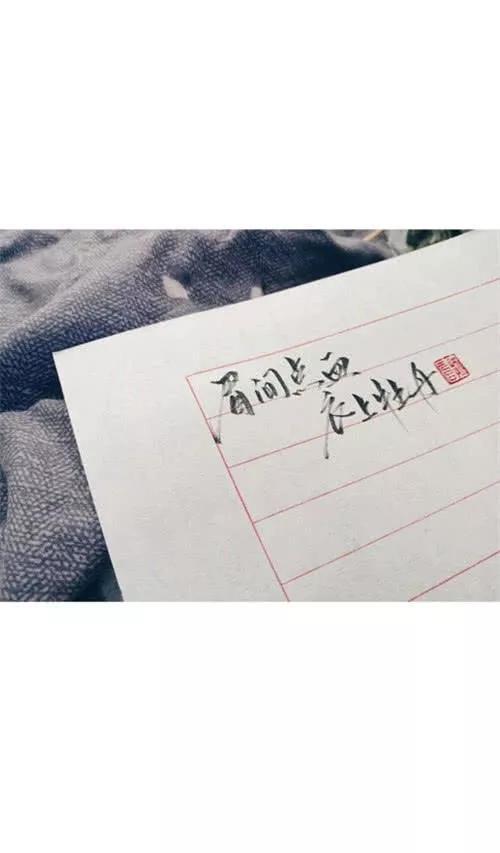 眉间点血
衣上牡丹